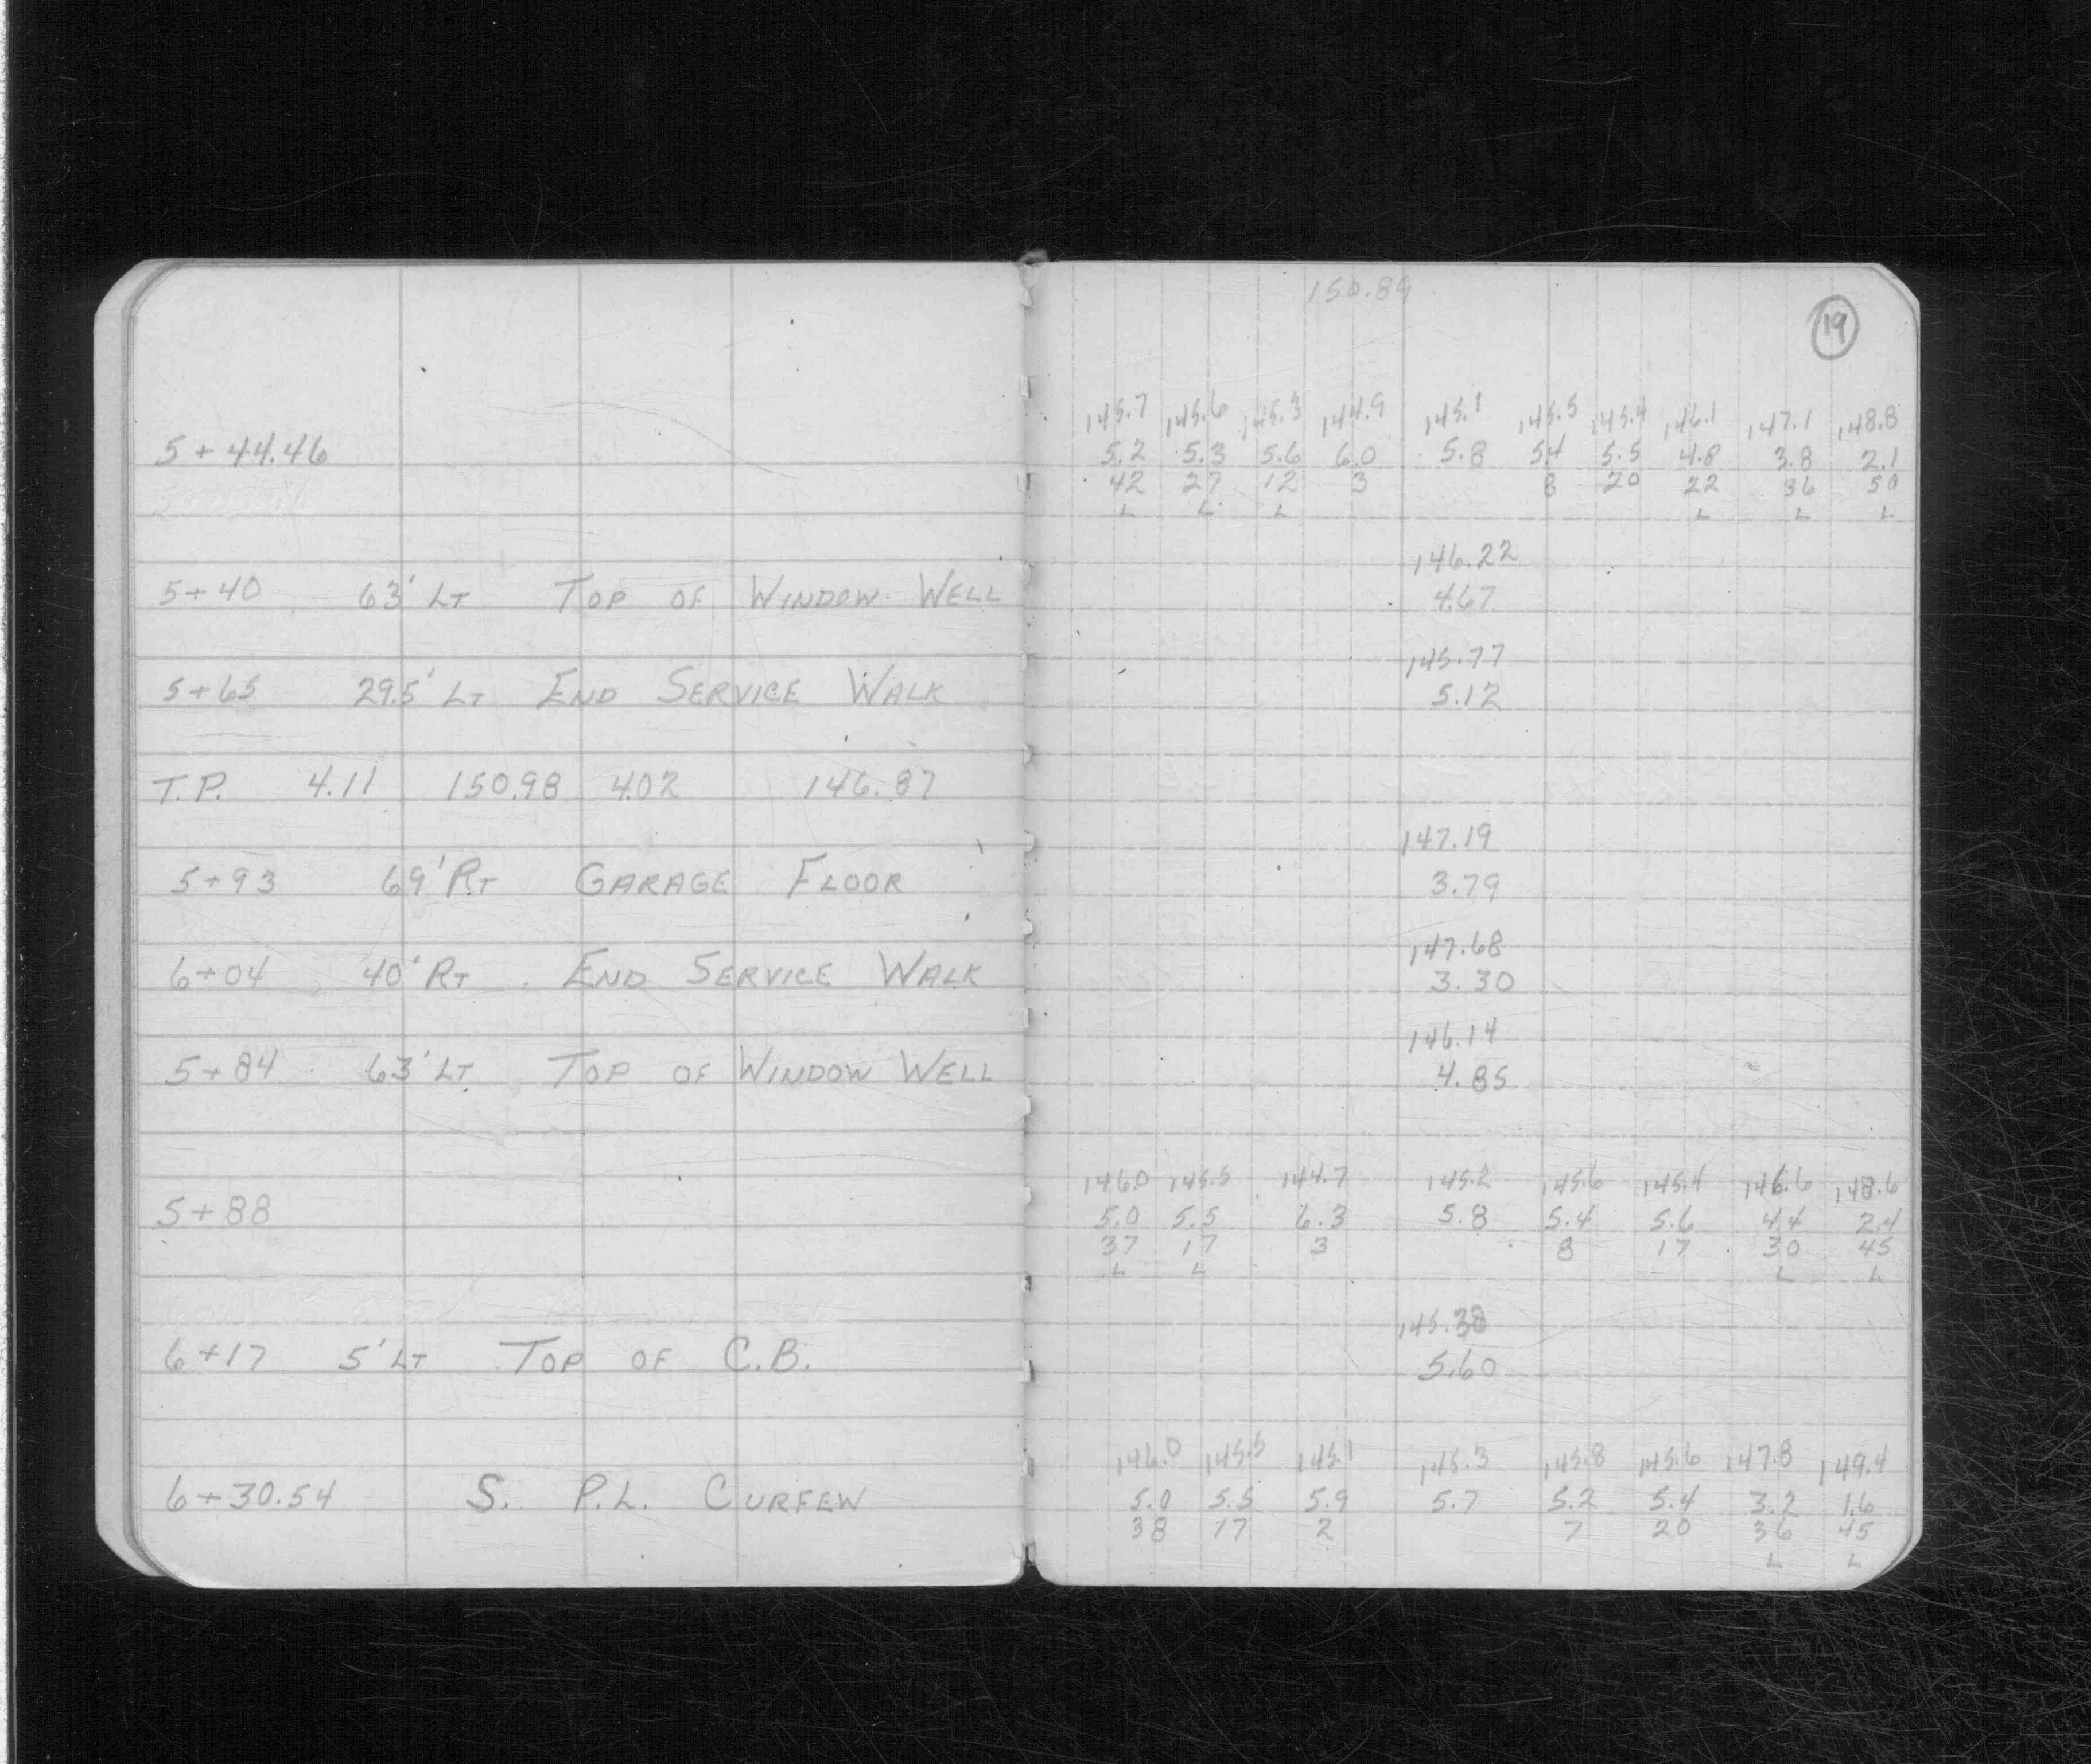 150.89
19
145.7 145.6 145.3 144.9 145.1 145.5 145.4 146.1 147.1 148.8
5+44.46 5.2 5.3 5.6 6.0 5.8 5.4 5.5 4.8 3.8 2.1
42 27 12 3 8 20 22 36 50
L L L L L L
146.22
5+40 63' LT TOP OF WINDOW WELL 4.67
145.77
5+65 29.5' LT END SERVICE WALK 5.12
T.P. 4.11 150.98 4.02 146.87
147.19
5+93 69' RT GARAGE FLOOR 3.79
147.68
6+04 40' RT END SERVICE WALK 3.30
146.14
5+84 63' LT TOP OF WINDOW WELL 4.85
146.0 145.5 144.7 145.2 145.6 145.4 146.6 148.6
5+88 5.0 5.5 6.3 5.8 5.4 5.6 4.4 2.4
37 17 3 8 17 30 45
L L L L
145.38
6+17 5' LT TOP OF C.B. 5.60
146.0 145.5 145.1 145.3 145.8 145.6 147.8 149.4
6+30.54 S. P.L. CURFEW 5.0 5.5 5.9 5.7 5.2 5.4 3.2 1.6
38 17 2 7 20 36 45
L L